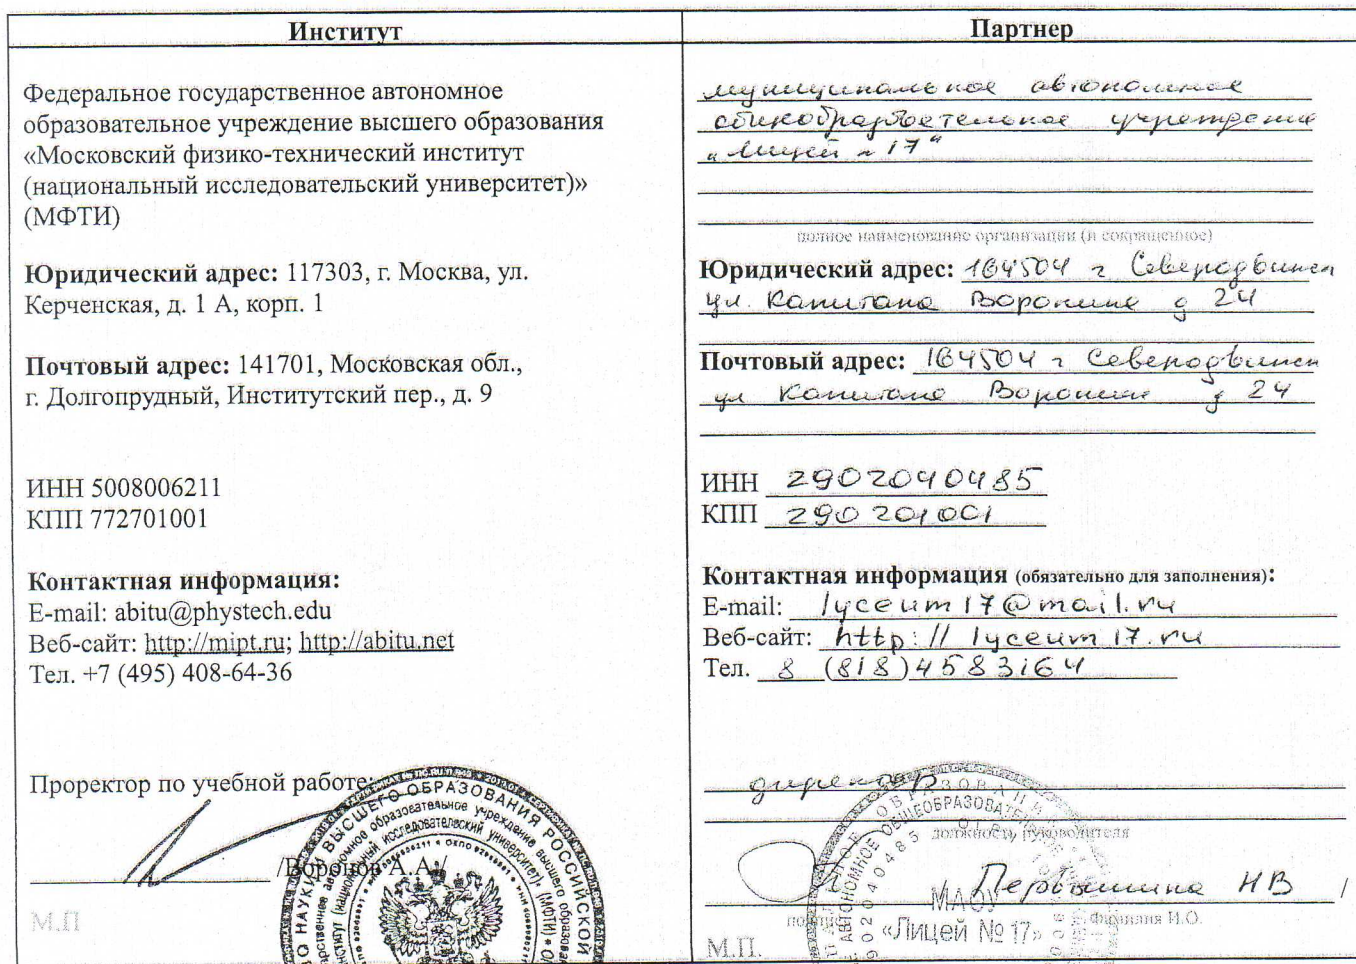 Институт
Федеральное государственное автономное
образовательное учреждение высшего образования
«Московский физико-технический институт
(национальный исследовательский университет)»
(МФТИ)
Юридический адрес: 117303, г. Москва, ул.
Керченская, д. 1 А, корп. 1
Почтовый адрес: 141701, Московская обл.,
г. Долгопрудный, Институтский пер., д. 9
ИНН 5008006211
КПП 772701001
Контактная информация:
E-mail: abitu@phystech.edu
Веб-сайт: http://mipt.ru; http://abitu.net
Тел. +7 (495) 408-64-36
Проректор по учебной работе:
/Воронов А.А./
М.П
ВЫСШЕГО ОБРАЗОВАНИЯ РОССИЙСКОЙ
образовательное учреждение высшего
исследовательский университет)
Партнер
муниципальное автономное
общеобразовательное учреждение
"Лицей № 17"
полное наименование организации (и сокращенное)
Юридический адрес: 164504 г Северодвинск
ул. Капитана Воронина д 24
Почтовый адрес: 164504 г Северодвинск
ул Капитана Воронина д 24
ИНН 2902040485
КПП 290201001
Контактная информация (обязательно для заполнения):
E-mail: lyceum17@mail.ru
Веб-сайт: http://lyceum17.ru
Тел. 8 (818)4583164
директор
должность руководителя
Первышина НВ /
подпись Фамилия И.О.
М.П.
АВТОНОМНОЕ ОБЩЕОБРАЗОВАТЕЛЬНОЕ
МАОУ
«Лицей № 17»